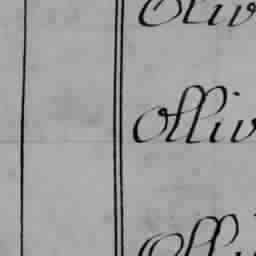 Olliv
Olliv
Olliv